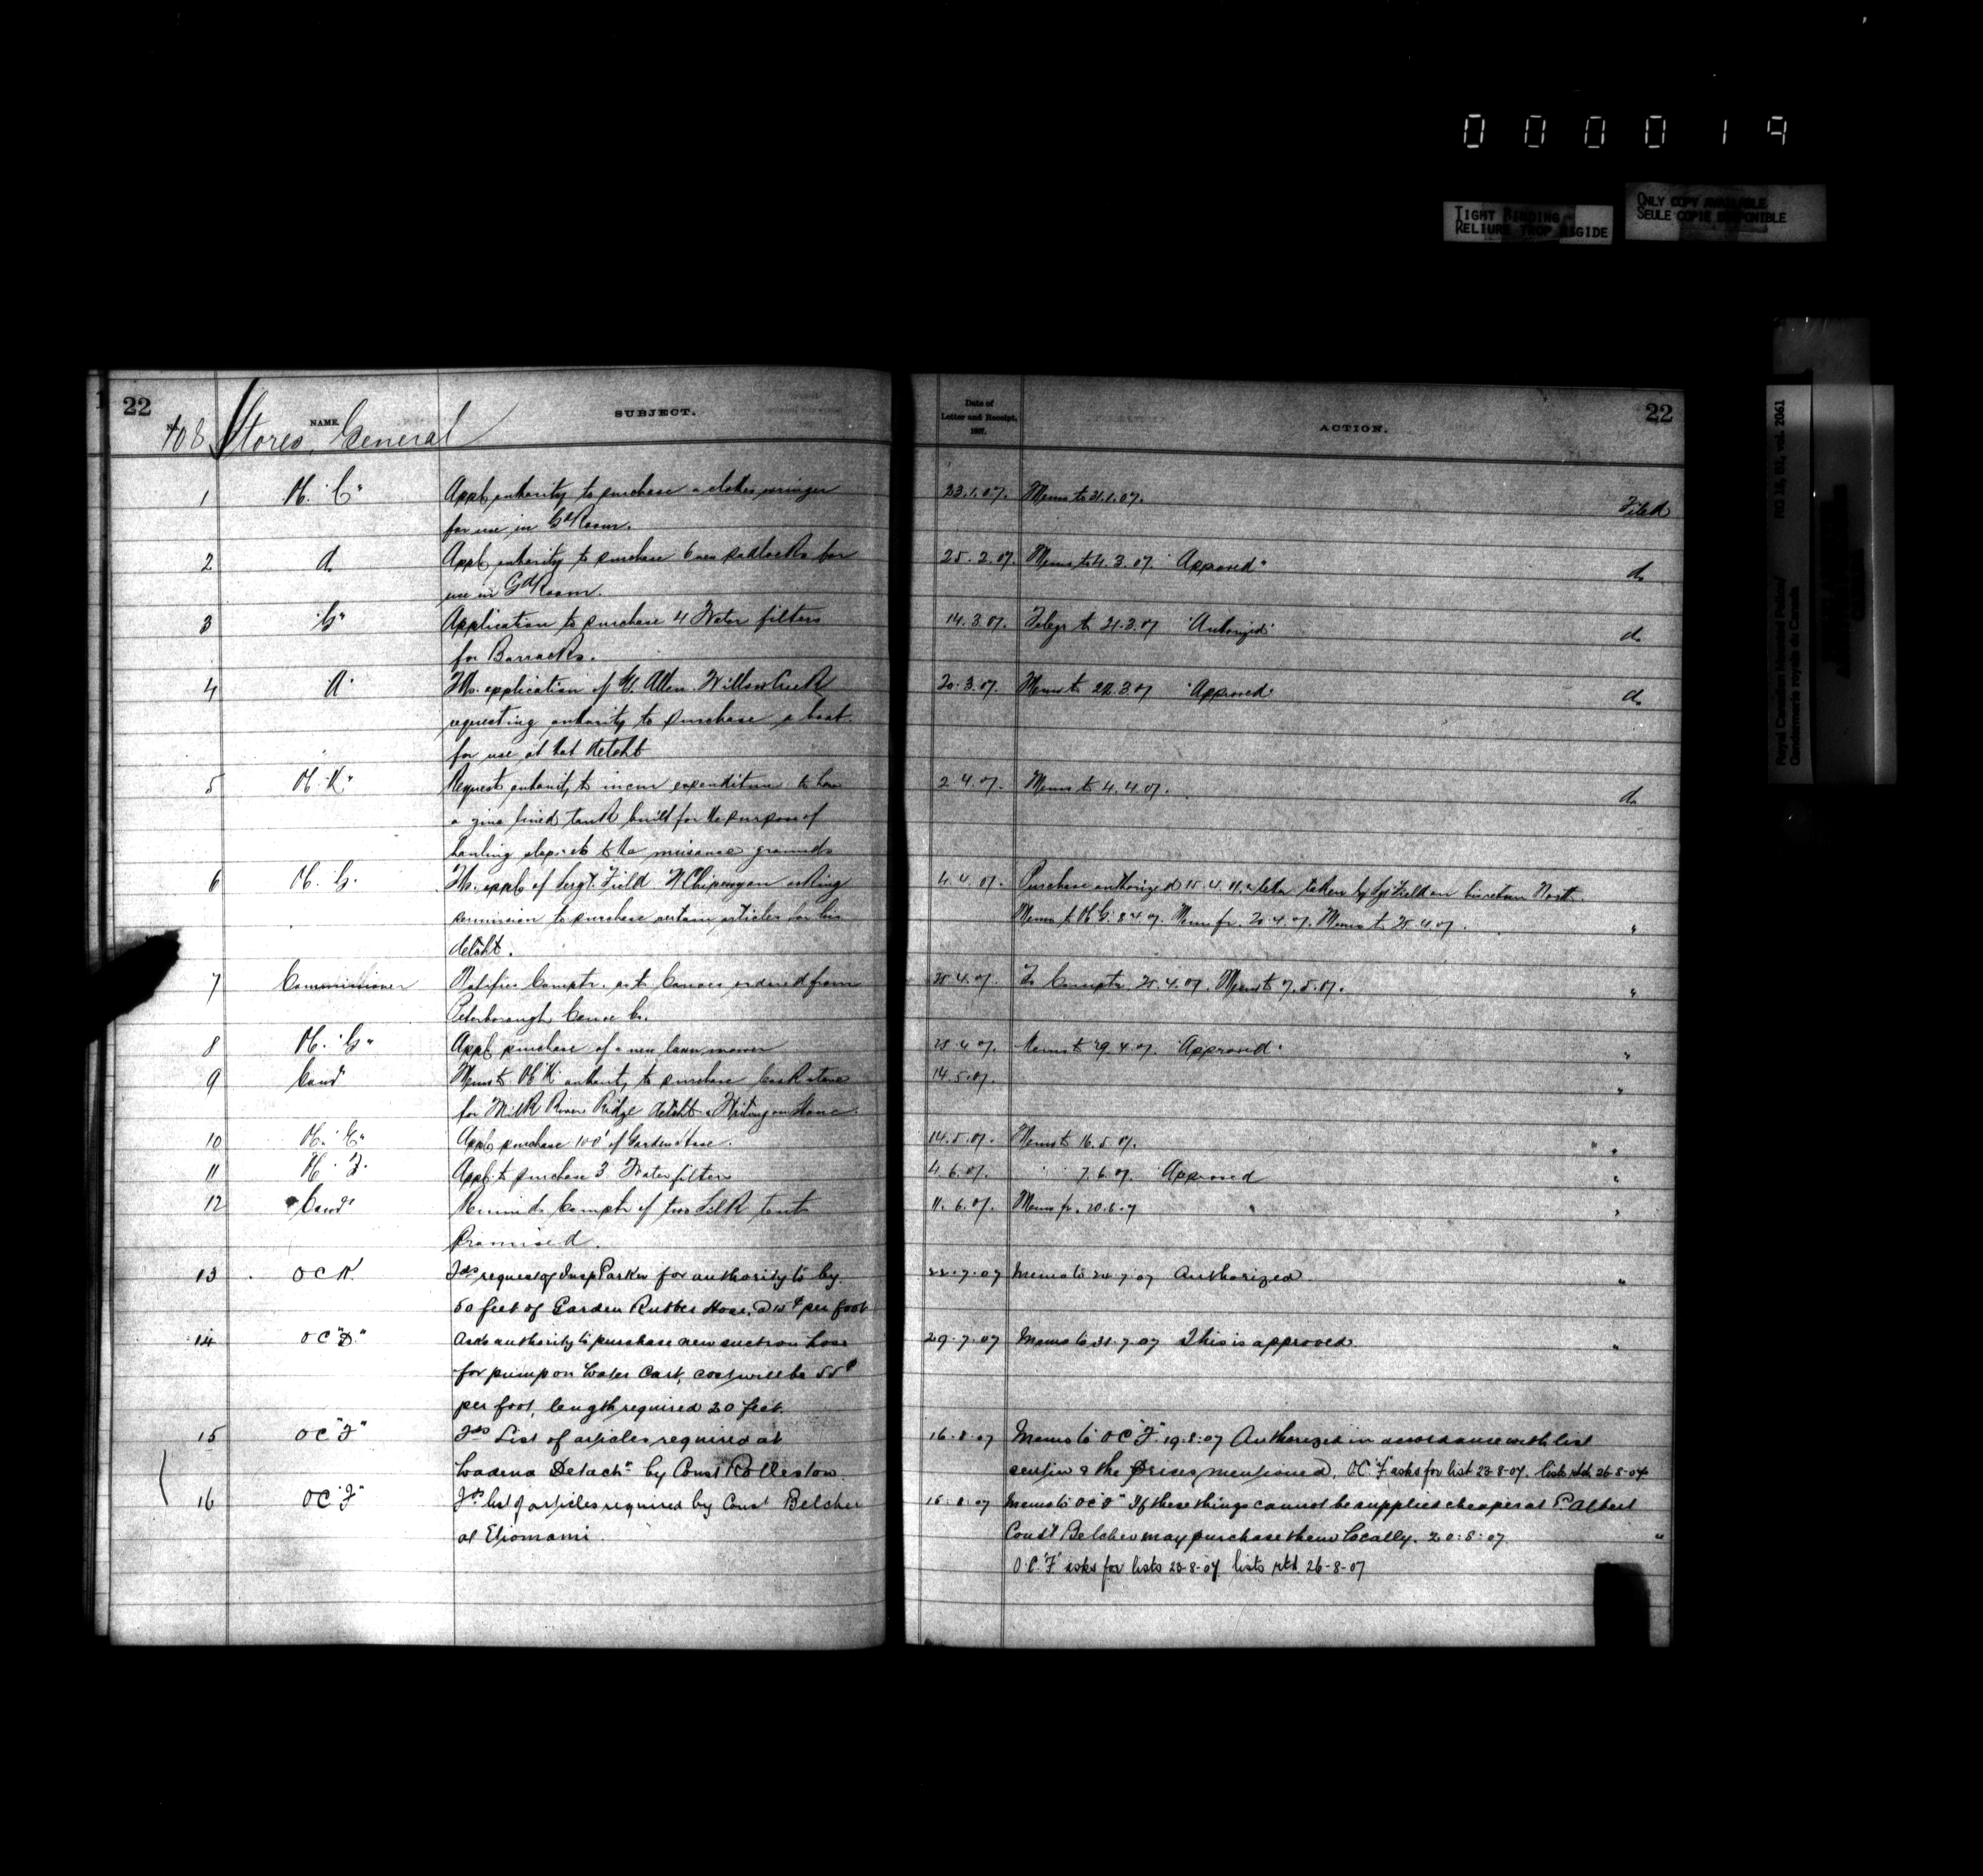 0 0 0 0 1 9
TIGHT BINDING
RELIURE TROP RIGIDE
ONLY COPY AVAILABLE
SEULE COPIE DISPONIBLE
Royal Canadian Mounted Police/
Gendarmerie royale du Canada
RG 18, B1, vol. 2061
22
No. NAME. SUBJECT.
Date of
Letter and Receipt,
1907.
ACTION.
22
108 Stores, General
1 "C" Appl. authority to purchase a clothes wringer 23.1.07. Memo to 31.1.07. Filed
for use in Gd Room.
2 do Appl. authority to purchase 6 new padlocks for 25.2.07. Memo to 4.3.07. "Approved" do
use in Gd Room.
3 "G" Application to purchase 4 Water filters 14.3.07. Telegr to 21.3.07 "Authorized" do
for Barracks.
4 "A" application of Allen Willow Creek 20.3.07. Memo to 22.3.07 "Approved" do
requesting authority to purchase a boat
for use at that detcht
5 "K" Request authority to incur expenditure to have 2.4.07. Memo to 4.4.07. do
a zinc lined tank built for the purpose of
hauling slops etc to the nuisance grounds
6 "G" appl. of Sergt. Field Chipewyan asking 4.4.07. Purchase authorized taken by Sgt Field on his return North.
permission to purchase certain articles for his Memo to "G" 8.4.07. Memo fr. 20.4.07. Memo to 25.4.07. "
detcht.
7 Commissioner Notifies Comptr. as to Canoes ordered from 25.4.07. To Comptr. 25.4.07. Memo to 7.5.07. "
Peterborough Canoe Co.
8 "G" Appl. purchase of a new lawn mower 25.4.07. Memo to 29.4.07. "Approved" "
9 Comr Memo to "K" authority to purchase Cook stove 14.5.07. "
for Milk River Ridge detcht & Writing on Stone.
10 Appl. purchase 100' of Garden Hose. 14.5.07. Memo to 16.5.07. "
11 "F" Appl. to purchase 3 Water filters 4.6.07. " " 7.6.07. Approved "
12 Comr Reminds Comptr of two Silk tents 11.6.07. Memo fr. 20.6.07 "
Promised.
13 OC K Fds request of Insp Parker for authority to by 22-7-07 Memo to 24-7-07 Authorized "
50 feet of Garden Rubber Hose @ 15¢ per foot
14 OC "D" Asks authority to purchase new suction hose 29-7-07 Memo to 31-7-07 This is approved "
for pump on Water Cart, cost will be 55¢
per foot, length required 20 feet.
15 OC "F" Fds List of articles required at 16-8-07 Memo to OC "F" 19-8-07 Authorized in accordance with list
Detacht by Const Rolleston. sent in & the prices mentioned. O.C. "F" asks for list 23-8-07. lists rtd 26-8-07
16 OC "F" Fds list of articles required by Const Belcher 15-8-07 Memo to OC "F" If these things cannot be supplied cheaper at P. Albert
at Etiomami. Const Belcher may purchase them locally. 20-8-07 "
O.C. "F" asks for lists 23-8-07 lists rtd 26-8-07